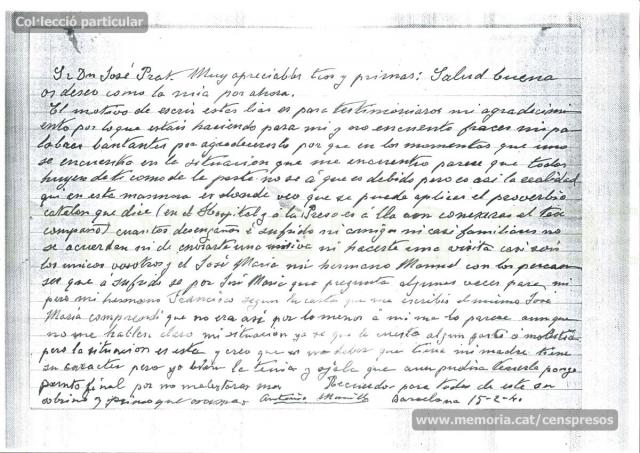 Col·lecció particular
Sr Dn José Prat. Muy apreciables tios y primas: Salud buena
os deseo como la mia por ahora.
El motivo de escrir estas lias es para testimoniaros mi agradecimi
ento por lo que estais haciendo para mi y no encuento fraces ni pa
labras bantantes por agradecerosto por que en los momentos que uno
se encuentra en la situacion que me encuentro parece que todos
huyen de ti como de la peste no se á que es debido pero es asi la realidad
que en esta manera es donde veo que se puede aplicar el proverbio
catalan que dice (en el Hospital y á la Preso es a lla con coneixeras el teu
compañó) cuantos desengaños é sufrido ni amigos ni casi familiares no
se acuerdan ni de enviarte una misiva ni hacerte una visita casi sois
los unicos vosotros y el José Maria mi hermano Manuel con los percan
ses que a sufrido se por José Maria que pregunta algunas veces para mi
pero mi hermano Francisco segun la carta que me escribió el mismo José
Maria comprendi que no era asi por lo menos á mi me lo parece aunque
no me hablen claro mi situacion ya se que le cuesta algun gasto ó molestia
pero la situacion es esta y creo que es un deber que tiene mi madre tiene
su caracter pero yo bien la tenia y ojala que aun pudiera tenerla pongo
punto final por no molestaros mas Recuerdos para todos de este su
sobrino y primo que Antonio Barcelona 15-2-4
www.memoria.cat/censpresos